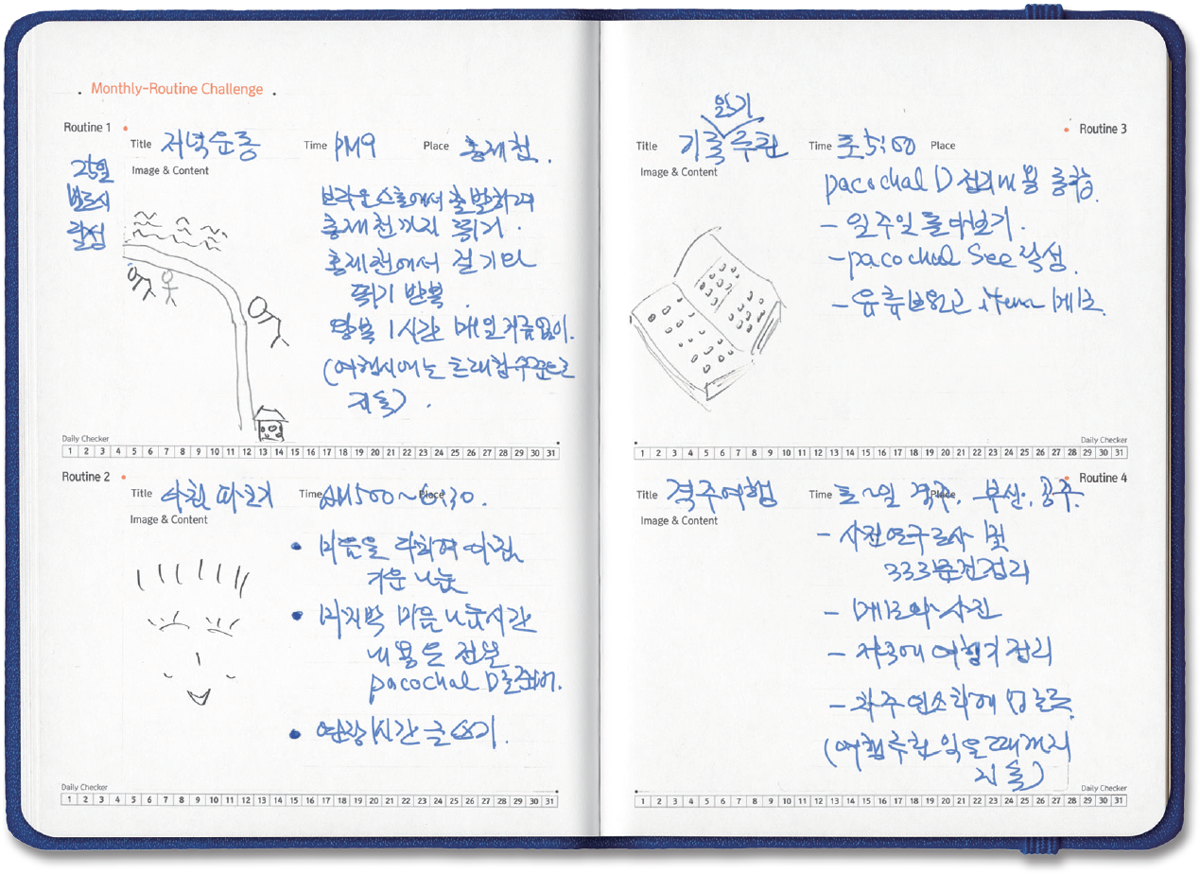 Monthly-Routine Challenge
Routine 1
Title 저녁운동 Time PM9 Place 홍제천.
Image & Content
반드시
브라운스톤에서 출발하여
홍제천까지 뛰기.
홍제천에서 걷기와
뛰기 반복.
왕복 1시간 매일 거름없이.
(여행시에는 트래킹수준으로
지속).
Daily Checker
1 2 3 4 5 6 7 8 9 10 11 12 13 14 15 16 17 18 19 20 21 22 23 24 25 26 27 28 29 30 31
Routine 2
Title 아침 Time AM 5:00~6:30. Place
Image & Content
• 마음을 다하여 아침
기운 나눔
• 마지막 마음 나눔시간
내용은 전부
pacochal D
• 한시간 글쓰기.
Daily Checker
1 2 3 4 5 6 7 8 9 10 11 12 13 14 15 16 17 18 19 20 21 22 23 24 25 26 27 28 29 30 31
Routine 3
읽기
Title 기록 Time 토 5:00 Place
Image & Content
pacochal D 정리내용 종합.
- 일주일 돌아보기.
- pacochal See 작성.
- 유튜브원고 item 메모.
Daily Checker
1 2 3 4 5 6 7 8 9 10 11 12 13 14 15 16 17 18 19 20 21 22 23 24 25 26 27 28 29 30 31
Routine 4
Title 격주여행 Time 토~일 격주. 부산, 공주. Place
Image & Content
- 사전연구조사 및
333문건정리
- 메모와 사진
- 차후에 여행기 정리
(여행 책 읽을때까지
지속)
Daily Checker
1 2 3 4 5 6 7 8 9 10 11 12 13 14 15 16 17 18 19 20 21 22 23 24 25 26 27 28 29 30 31